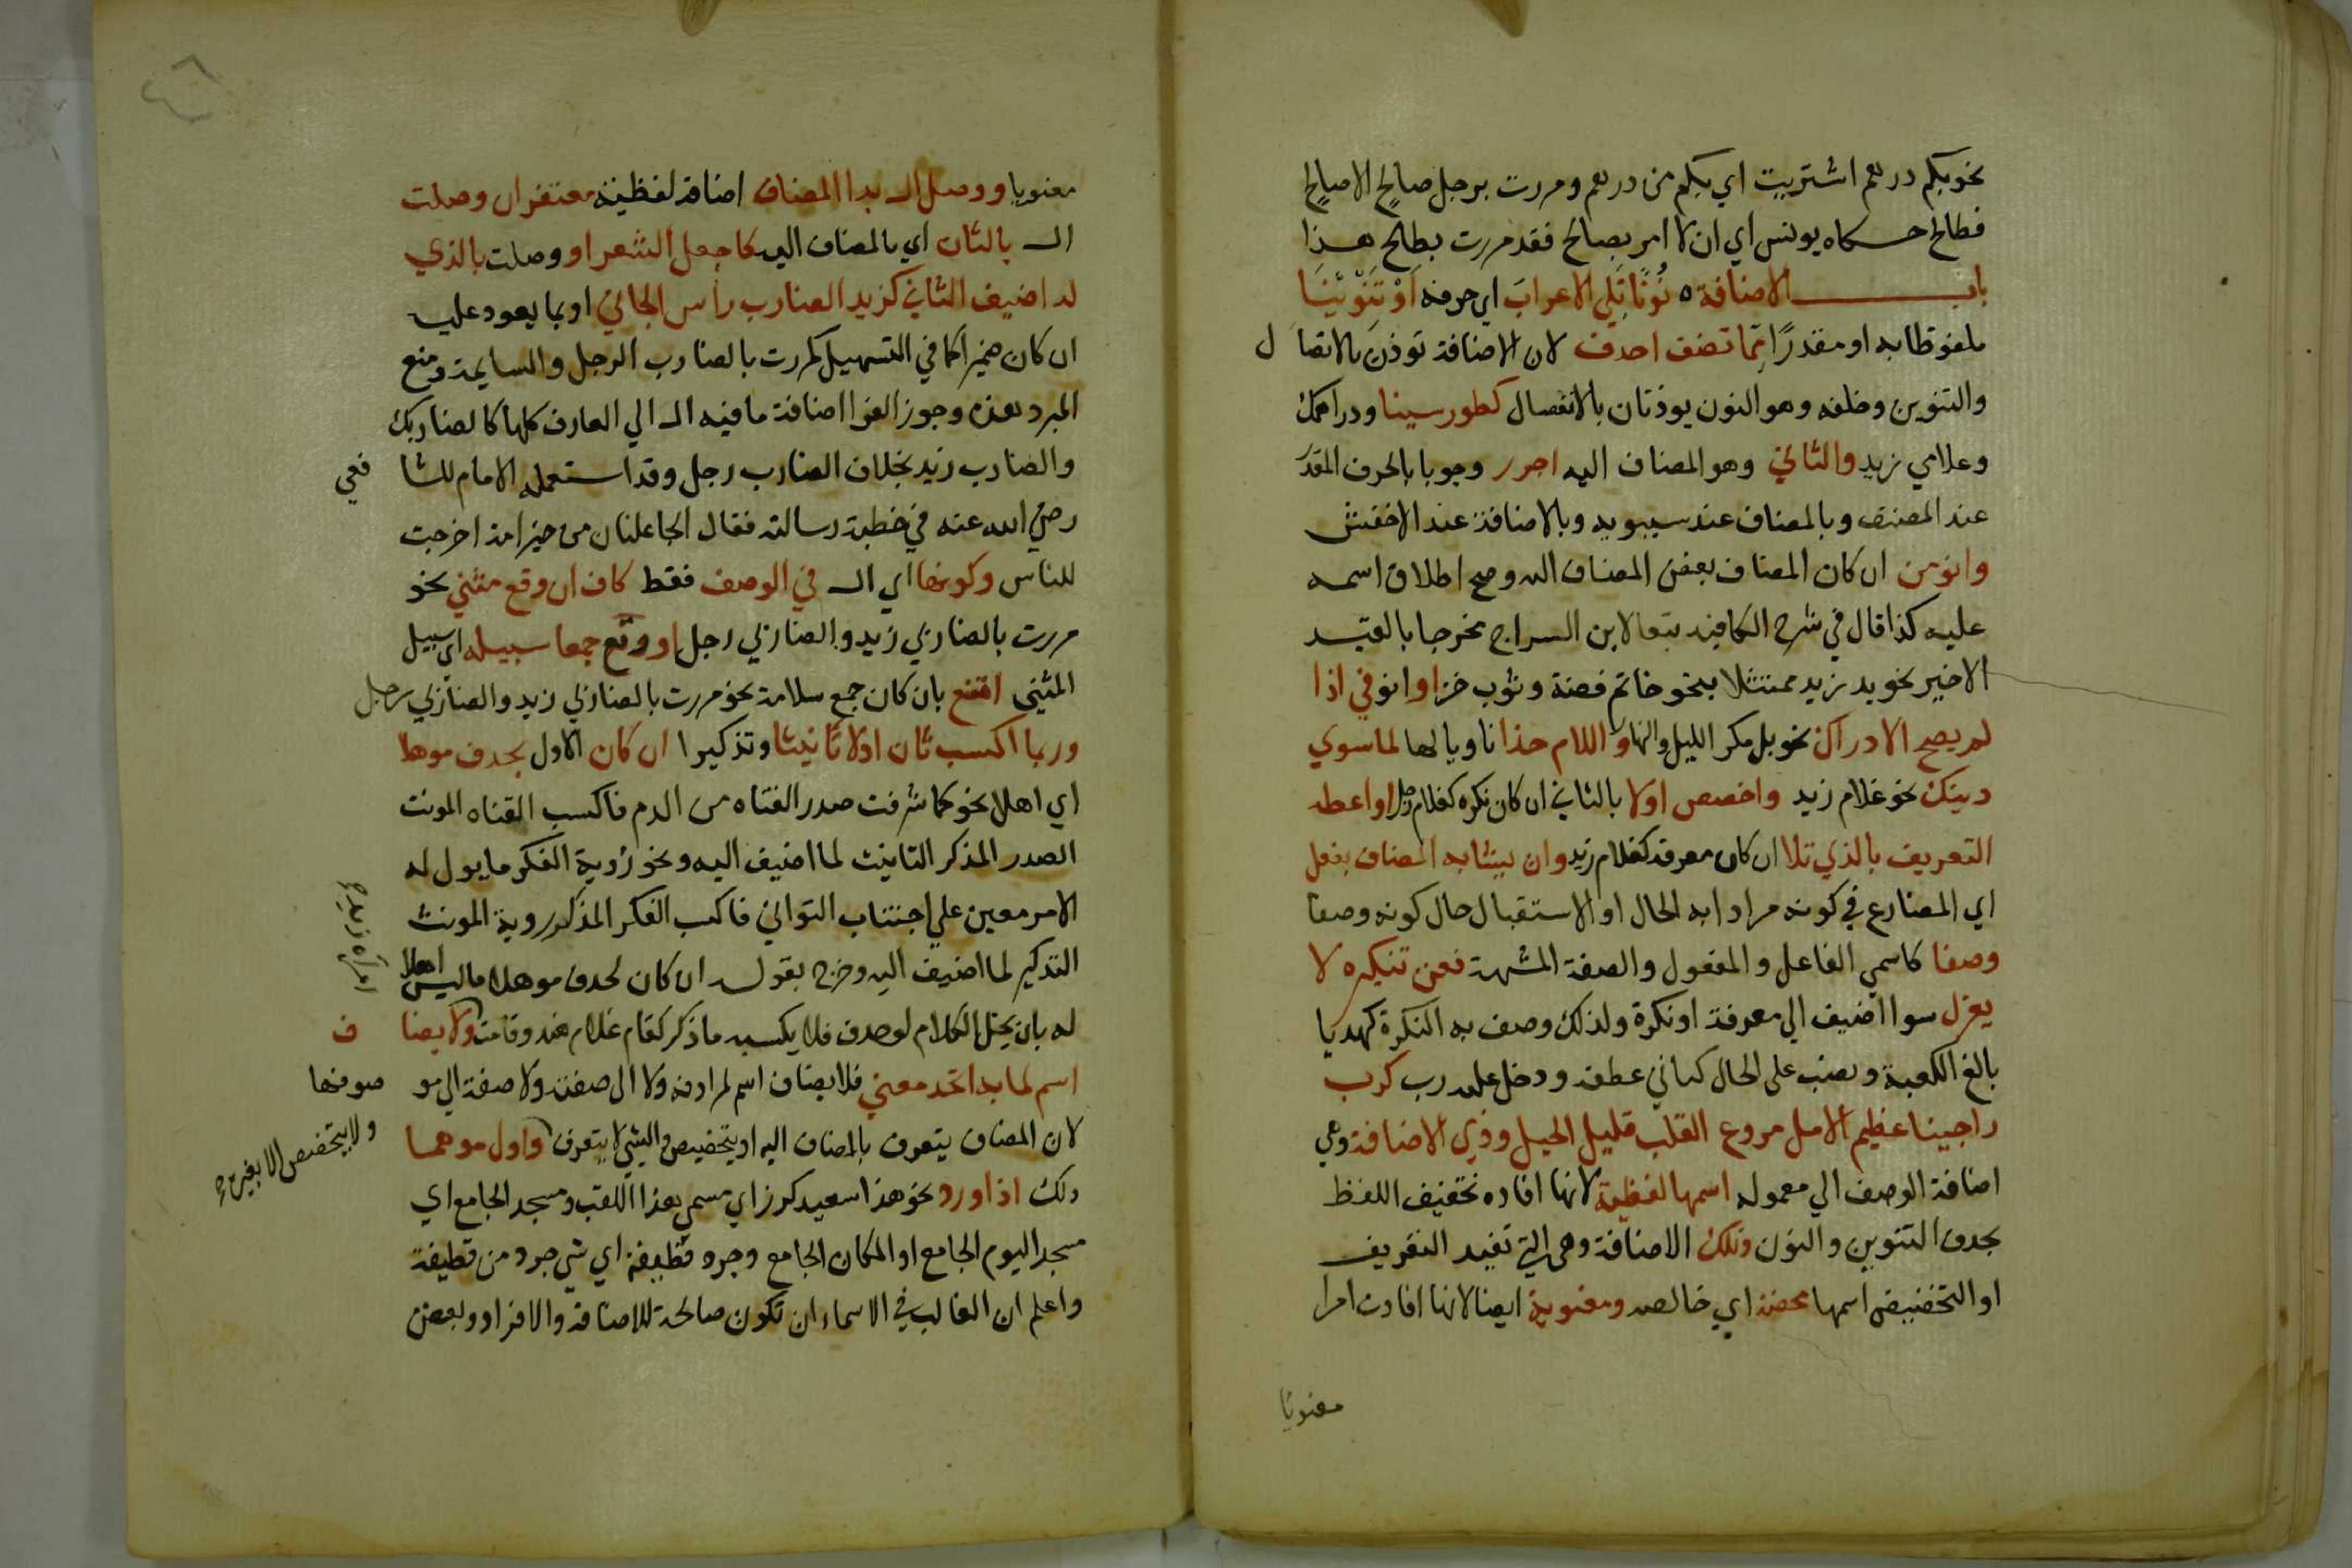 نحو بكم درهم اشتريت اي بكم من درهم ومررت برجل صالح الا صالح
فطالح حكاه يونس اي ان لا امر بصالح فقد مررت بطالح هذا
باب الاضافة ه نُونًا تَلِي الاعرابَ اي حرفه اَوْ تَنْوِيْنَا
ملفوظا به او مقدرًا مِمّا تضف احذف لان الاضافة توذن بالاتصال
والتنوين وخلفه وهو النون يوذنان بالانفصال كطور سينا ودراهمك
وغلامي زيد والثاني وهو المضاف اليه اجرر وجوبا بالحرف المقدر
عند المصنف وبالمضاف عند سيبويه وبالاضافة عند الاخفش
وانو من ان كان المضاف بعض المضاف اليه وصح اطلاق اسمه
عليه كذا قال في شرح الكافية تبعا لابن السراج مخرجا بالقيد
الاخير نحو يد زيد ممثلا بنحو خاتم فضة وثوب خز او انو في اذا
لم يصح الا ذاك نحو بل مكر الليل والنهار واللام خذا ناويا لها لما سوي
ذينك نحو غلام زيد واخصص اولا بالثاني ان كان نكره كغلام رجل او اعطه
التعريف بالذي تلا ان كان معرفة كغلام زيد وان يشابه المضاف يفعل
اي المضارع في كونه مرادا به الحال او الاستقبال حال كونه وصفا
وصفا كاسمي الفاعل والمفعول والصفة المشبهة فعن تنكيره لا
يعزل سوا اضيف الي معرفة او نكرة ولذلك وصف به النكرة كهديا
بالغ الكعبة ونصب على الحال كثاني عطفه ودخل عليه رب كرب
راجينا عظيم الامل مروع القلب قليل الحيل وذي الاضافة وهي
اضافة الوصف الي معموله اسمها لفظية لانها افاده تخفيف اللفظ
بحذف التنوين والنون وتلك الاضافة وهي التي تفيد التعريف
او التخصيص اسمها محضة اي خالصه ومعنوية ايضا لانها افادت امرا
معنويا
معنويا ووصل ال بذا المضاف اضافة لفظية مغتفر ان وصلت
ال بالثان اي بالمضاف اليه كالجعل الشعر او وصلت بالذي
له اضيف الثاني كزيد الضارب راس الجاني او بما يعود عليه
ان كان ضميرا كما في التسهيل كمررت بالضارب الرجل والشاتمه ومنع
المبرد هذه وجوز الفرا اضافة ما فيه ال الي المعارف كلها كالضاربك
والضارب زيد بخلاف الضارب رجل وقد استعمله الامام للشافعي
رضي الله عنه في خطبة رسالته فقال الجاعلنا من خير امة اخرجت
للناس وكونها اي ال في الوصف فقط كاف ان وقع مثني نحو
مررت بالضاربي زيد والضاربي رجل او وقع جمعا سبيله اي سبيل
المثني اتبع بان كان جمع سلامة نحو مررت بالضاربي زيد والضاربي رجل
وربما اكسب ثان اولا تانيثا وتذكيرا ان كان الاول بحذف موهلا
اي اهلا نحو كما شرقت صدر القناه من الدم فاكسب القناه المونث
الصدر المذكر التانيث لما اضيف اليه ونحو رؤية الفكر ما يول له
الامر معين علي اجتناب التواني فاكسب الفكر المذكر روية المونث
التذكير لما اضيف اليه وخرج بقوله ان كان لحذف موهلا ما ليس اهلا
له بان يختل الكلام لو حذف فلا يكسبه ما ذكر كقام غلام هند وقامت ولا يضاف
امراة زيد
اسم لما به اتحد معني فلا يضاف اسم لمرادفه ولا الى صفته ولا صفة الي موصوفها
لان المضاف يتعرف بالمضاف اليه او يتخصص والشي لا يتعرف واول موهما
ولا يتخصص الا بغيره
ذلك اذا ورد نحو هذا سعيد كرز اي مسمي بهذا اللقب ومسجد الجامع اي
مسجد اليوم الجامع او المكان الجامع وجرد قطيفة اي شي جرد من قطيفة
واعلم ان الغالب في الاسماء ان تكون صالحة للاضافة والافراد وبعض